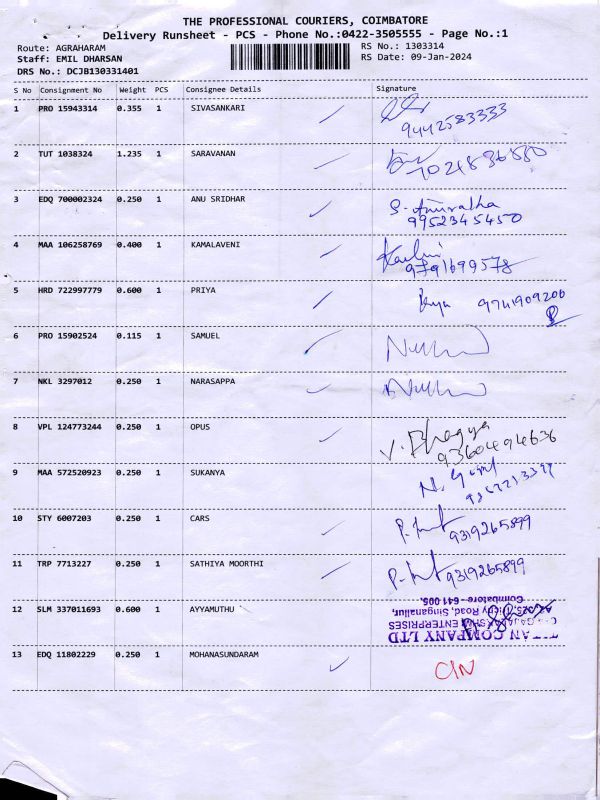 THE PROFESSIONAL COURIERS, COIMBATORE
Delivery Runsheet - PCS - Phone No.:0422-3505555 - Page No.:1
Route: AGRAHARAM RS No.: 1303314
Staff: EMIL DHARSAN RS Date: 09-Jan-2024
DRS No.: DCJB130331401
S No Consignment No Weight PCS Consignee Details Signature
1 PRO 15943314 0.355 1 SIVASANKARI
9442583333
2 TUT 1038324 1.235 1 SARAVANAN
3 EDQ 700002324 0.250 1 ANU SRIDHAR S. Anuratha
9952345450
4 MAA 106258769 0.400 1 KAMALAVENI
9791699578
5 HRD 722997779 0.600 1 PRIYA 9741909200
6 PRO 15902524 0.115 1 SAMUEL
7 NKL 3297012 0.250 1 NARASAPPA
8 VPL 124773244 0.250 1 OPUS V. Bhagya
9360494636
9 MAA 572520923 0.250 1 SUKANYA
10 STY 6007203 0.250 1 CARS
9319265899
11 TRP 7713227 0.250 1 SATHIYA MOORTHI
9319265899
12 SLM 337011693 0.600 1 AYYAMUTHU
Coimbatore - 641 005.
Road, Singanallur,
ENTERPRISES
TITAN COMPANY LTD
13 EDQ 11802229 0.250 1 MOHANASUNDARAM